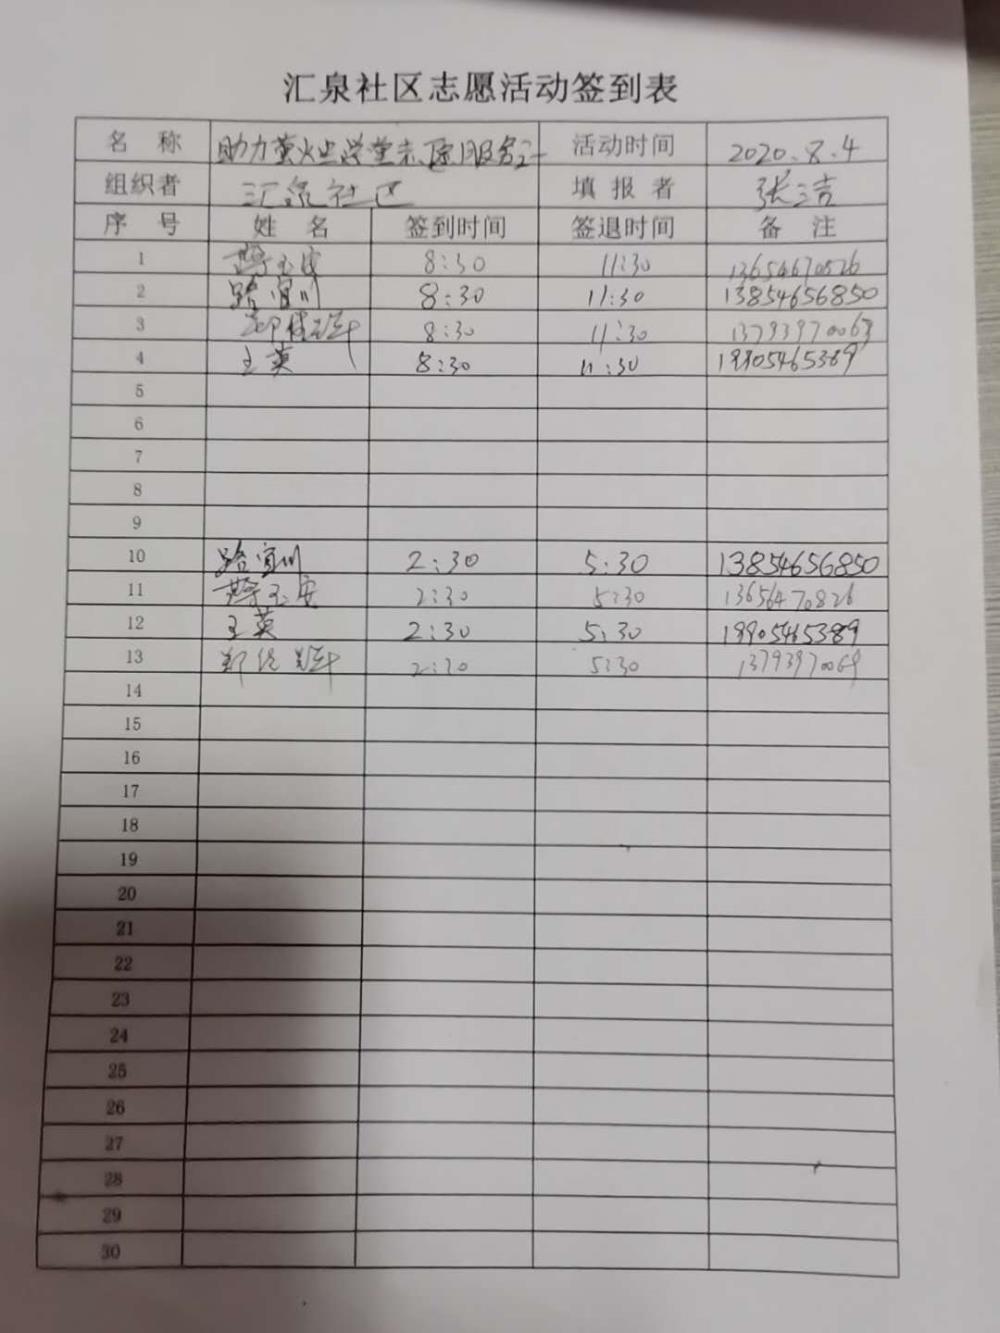 汇泉社区志愿活动签到表
名 称 助力萤火 学堂志愿服务 活动时间 2020.8.4
组织者 汇泉社区 填报者 张洁
序 号 姓 名 签到时间 签退时间 备 注
1 玉安 8:30 11:30 13654670826
2 路宜川 8:30 11:30 13854656850
3 8:30 11:30
4 王英 8:30 11:30 19905465389
5
6
7
8
9
10 路宜川 2:30 5:30 13854656850
11 玉安 2:30 5:30 13656470826
12 王英 2:30 5:30 19905465389
13 2:30 5:30
14
15
16
17
18
19
20
21
22
23
24
25
26
27
28
29
30